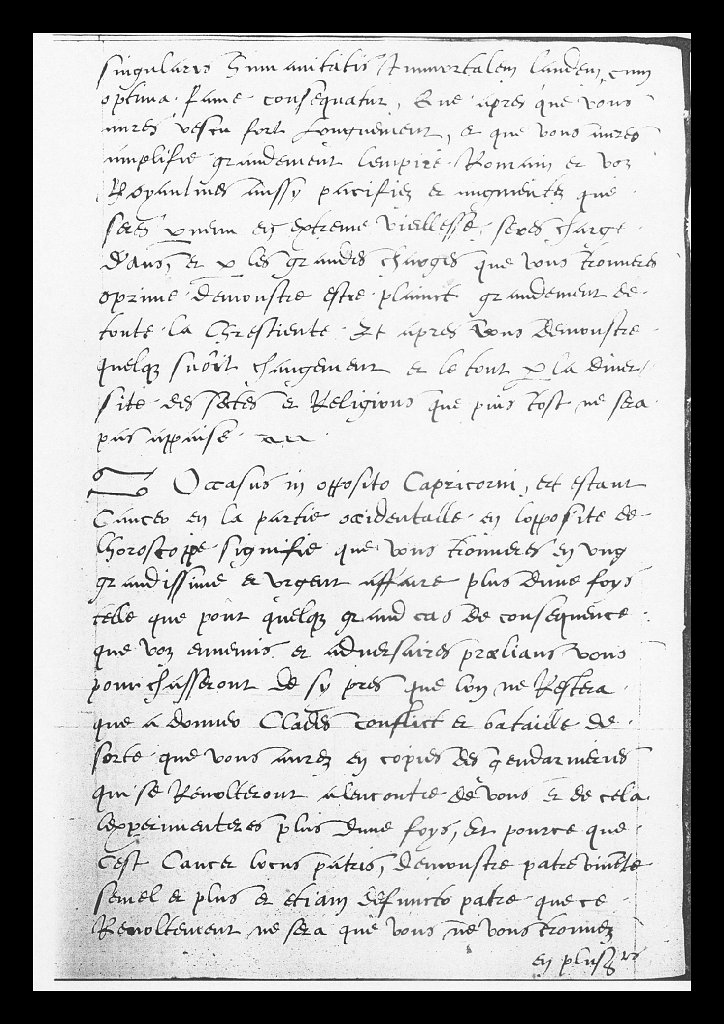 singularis humanitatis & immortalem laudem, cum
optima fame consequatur, Que apres que vous
aures vescu fort Longuement, et que vous aures
amplifie grandement lempire Romain et voz
Royaulmes aussy pacifiez et augmentez que
seres en extreme viellesse, seres charge
Dans, et p les grandes charges que vous trouveres
oprime demonstre estre plainct grandement de
toute la Chrestiente. Et apres vous demonstre
quelqz changement et le tout p la diver
site des sectes et Religions que plus tost ne sera
pas appaise.
Occasus in opposito Capricorni, et estant
Cancer en la partie occidentalle en lopposite de
lhoroscoppe signifie que vous trouveres en ung
grandissime et urgent affaire plus dune foys
celle que pour quelqz grand cas de consequence
que voz ennemis et adversaires prælians vous
pourchasseront de sy pres que lon ne Restera
que a donner Clades conflict et bataille de
sorte que vous aurez en copies des gendarmeries
qui se Revolteront a lencontre de vous et de cela
lexperimenteres plus dune foys, Et pource que
cest Cancer locus patris, demonstre patre vivete
semel et plus et etiam defuncto patre que ce
Revoltement ne sera que vous ne vous trouvez
en plus